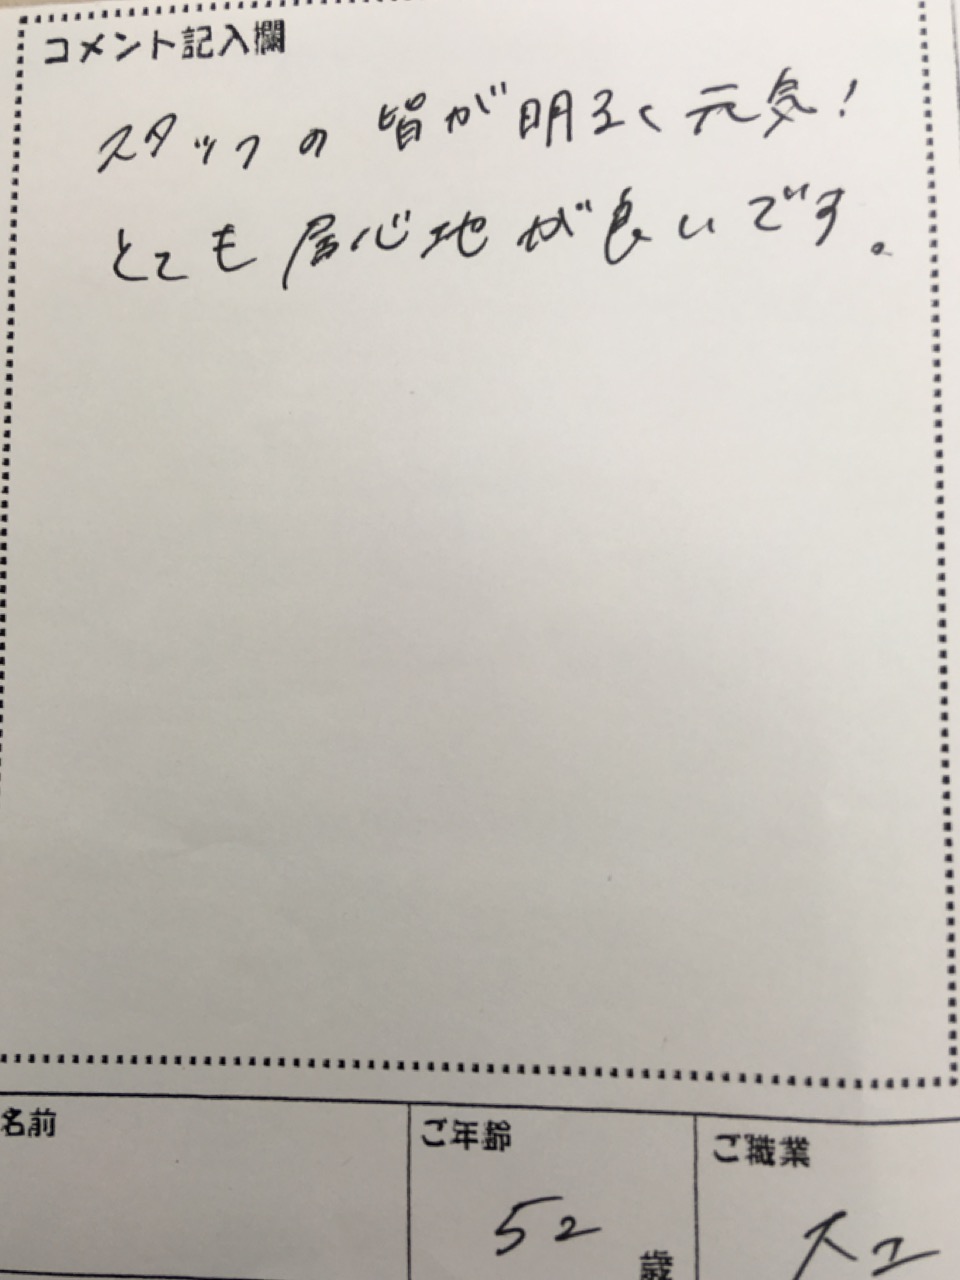 コメント記入欄
スタッフの皆が明るく元気!
とても居心地が良いです。
名前
ご年齢
ご職業
52
歳
大工